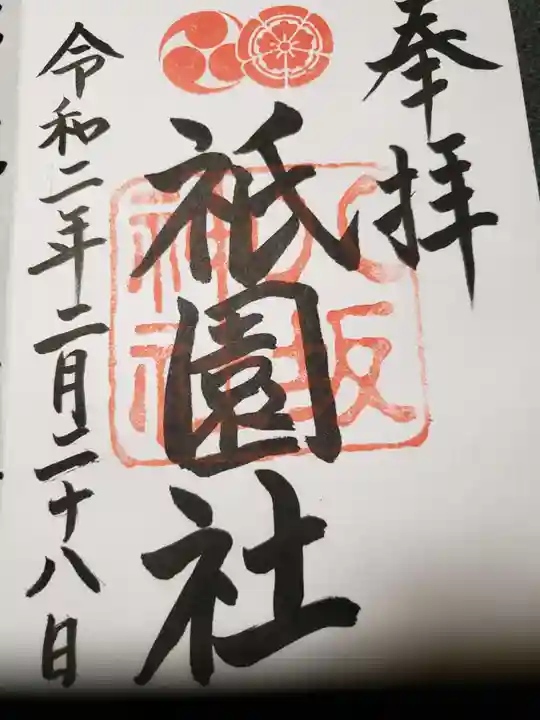 奉拝
八坂
神社
祇園社
令和二年二月二十八日